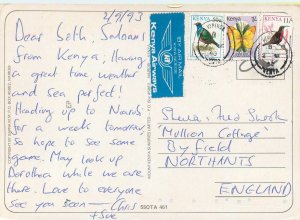 2/9/93
Dear Seth,
from Kenya, Having
a great time, weather
and sea perfect!
Heading up to
for a week tomorrow
so hope to see some
game. May look up
Dorothea while we are
there. Love to everyone
see you soon - Chris
+ Sue
Kenya Airways
BY AIR MAIL
PAR AVION
KENYA
KENYA
KENYA
'Mullion Cottage'
Byfield
NORTHANTS
ENGLAND
SSOTA 461